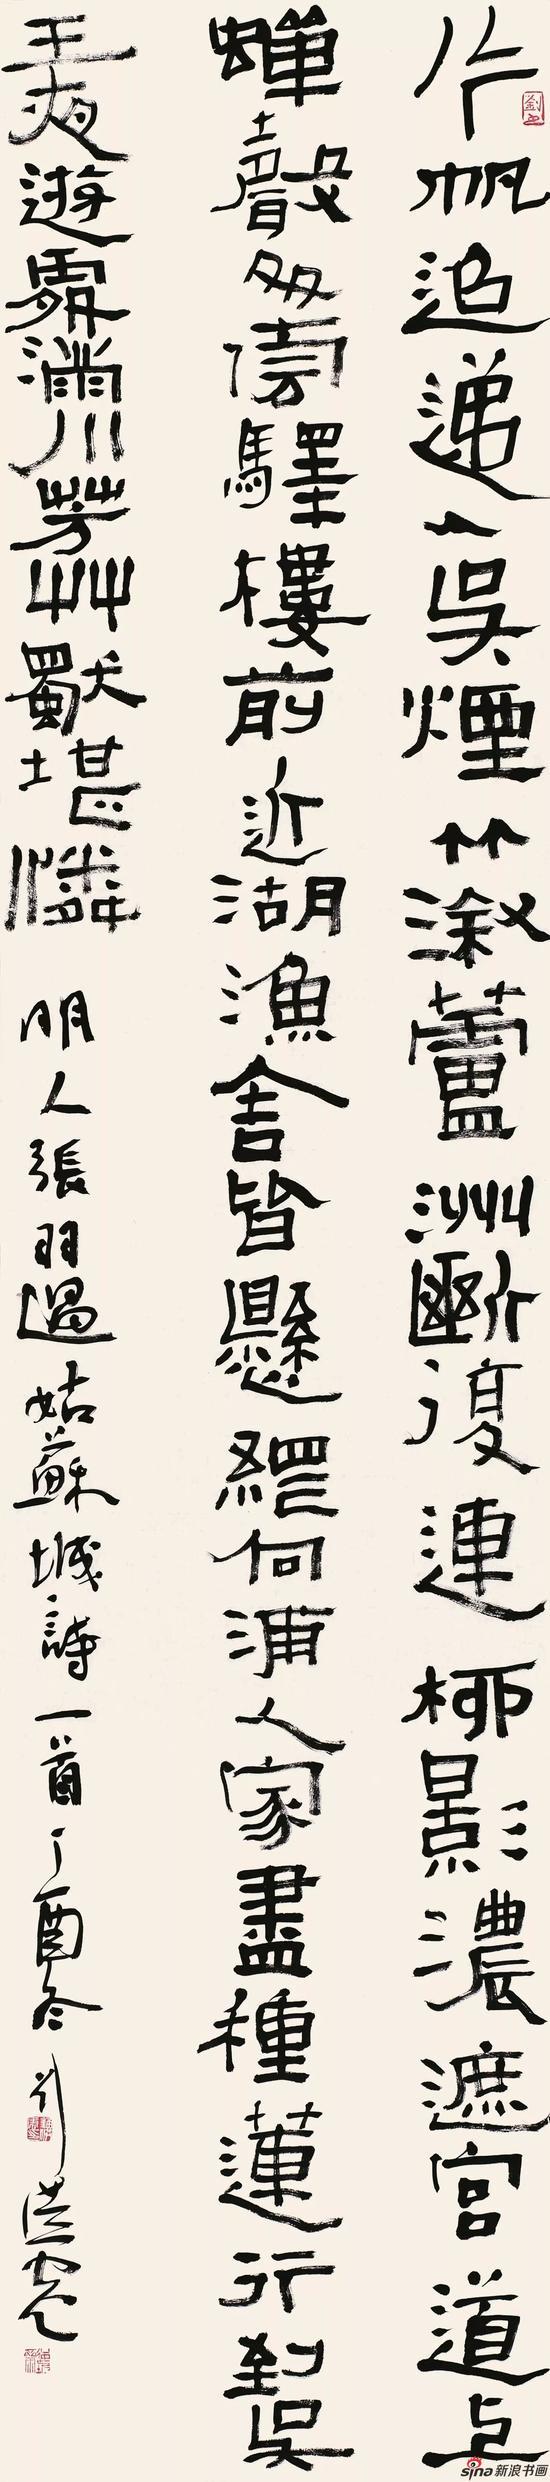 片帆迢遞入吳煙竹漵蘆洲斷復連柳影濃遮官道上
蟬聲多傍驛樓前近湖漁舍皆懸網向浦人家盡種蓮行到吳
王夜遊處滿川芳草獨堪憐 明人張羽過姑蘇城詩一首丁酉冬 劉
sina新浪书画